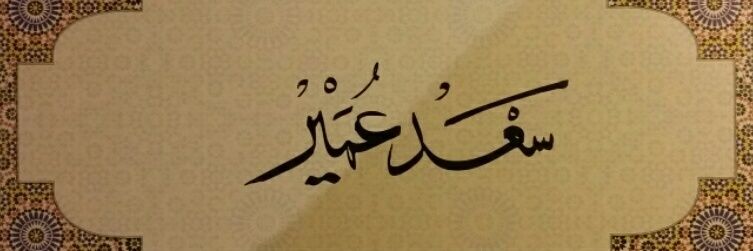 سَعْدُ عُمَيْرُ